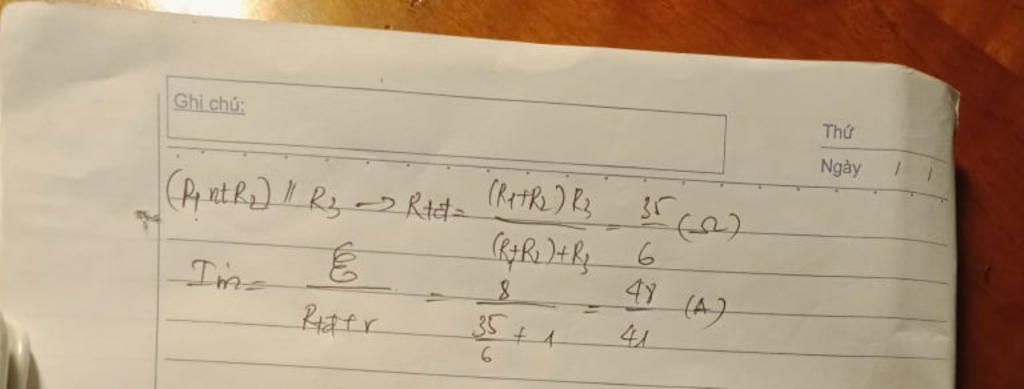 Ghi chú:
Thứ
Ngày / /
(R₁ nt R₂) // R₃ → Rtđ = (R₁+R₂)R₃ / (R₁+R₂)+R₃ = 35/6 (Ω)
Im = ℰ / Rtđ+r = 8 / (35/6 + 1) = 48/41 (A)